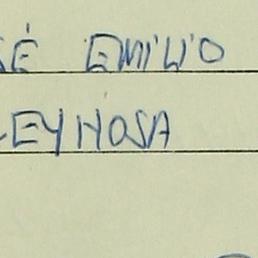 SÉ EMILIO
EYNOSA